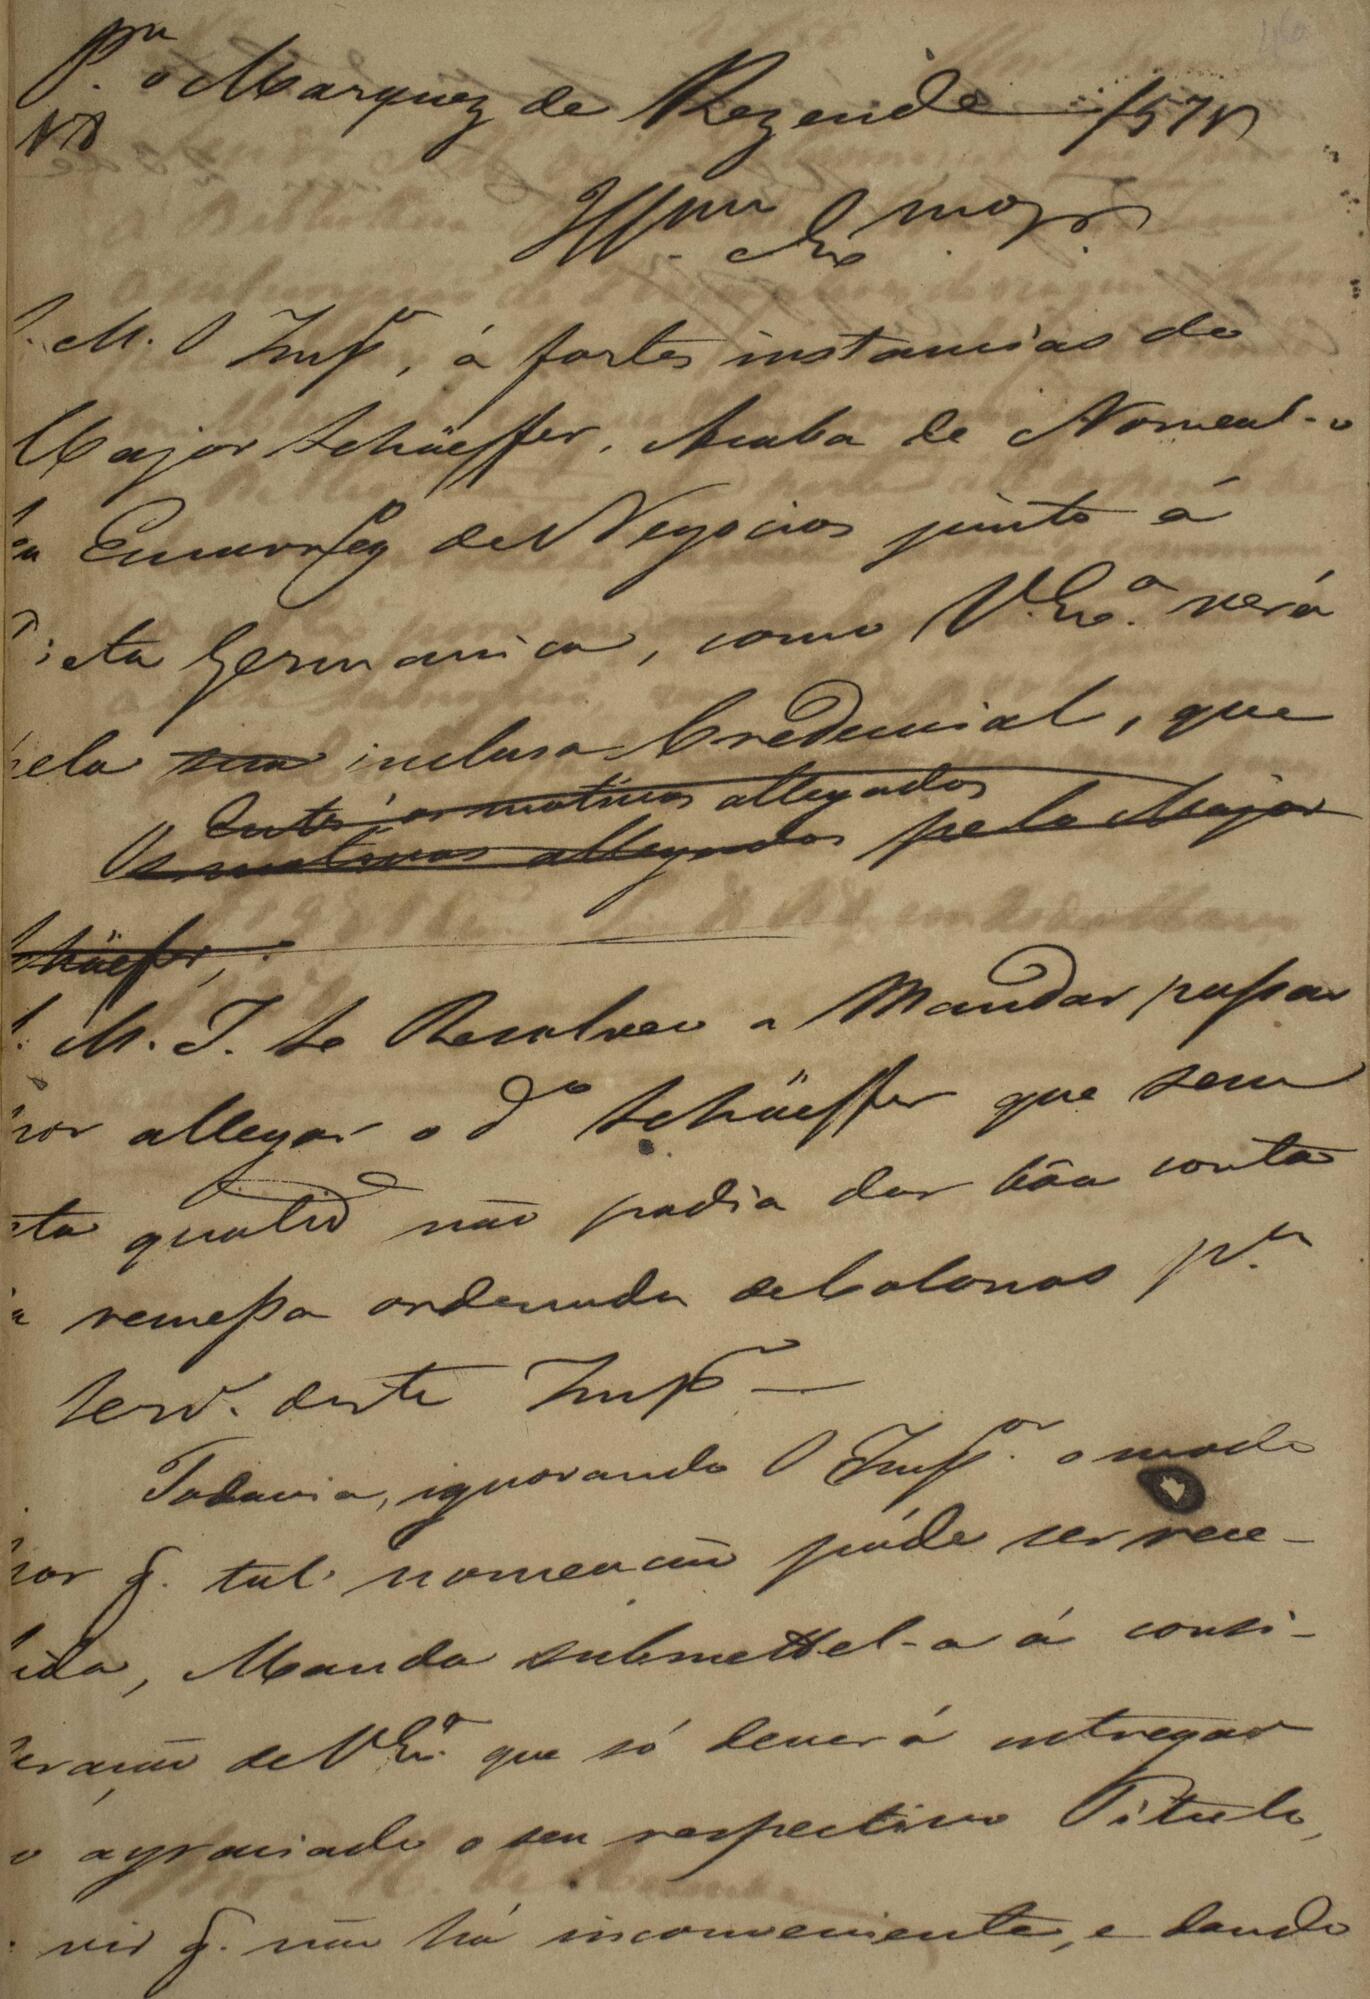 P.ª o Marquez de Rezende
N 8
Ill.mo Ex.mo Sr.
S. M. O Imp.or, á fortes instancias do
Major Schäeffer, Acaba de Nomeal-o
Encarreg de Negocios junto á
Dieta Germanica, como V. Ex.ª verá
pela sua inclusa Credencial, que
Ente os motivos allegados
Os motivos allegados pelo Major
Schäeffer,
S. M. I. Se Resolveo a Mandar passar
por allegar o d.º Schäeffer que sem
esta qualid.e não podia dar bôa conta
da remessa ordenada de Colonos p.ª
Serv.º deste Imp.º —
Todavia, ignorando O Imp.or o modo
por q. tal nomeação póde ser rece-
bida, Manda submettel-a á consi-
deração de V. Ex.ª que só deverá entregar
o agraciado o seu respectivo Titulo,
vir q. não há inconveniente, e dando